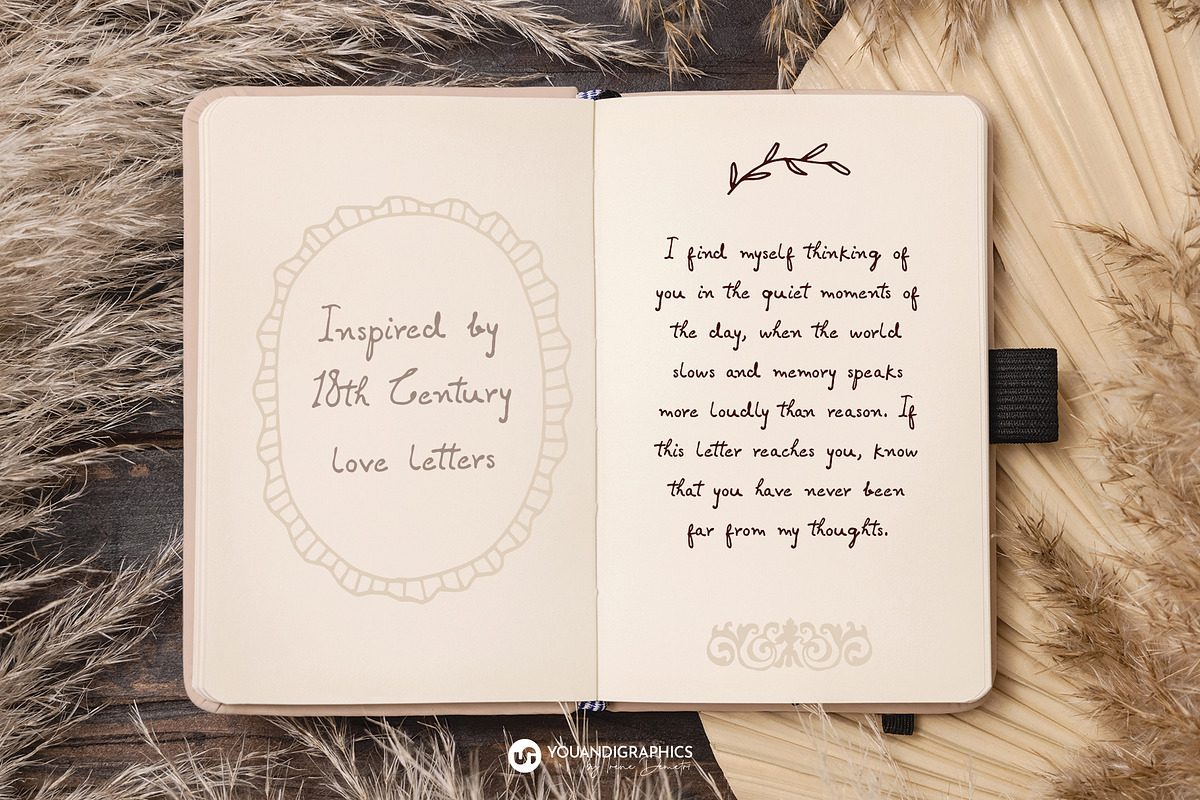 Inspired by
18th Century
love letters
I find myself thinking of
you in the quiet moments of
the day, when the world
slows and memory speaks
more loudly than reason. If
this letter reaches you, know
that you have never been
far from my thoughts.
YOUANDIGRAPHICS
by Irene Demetri